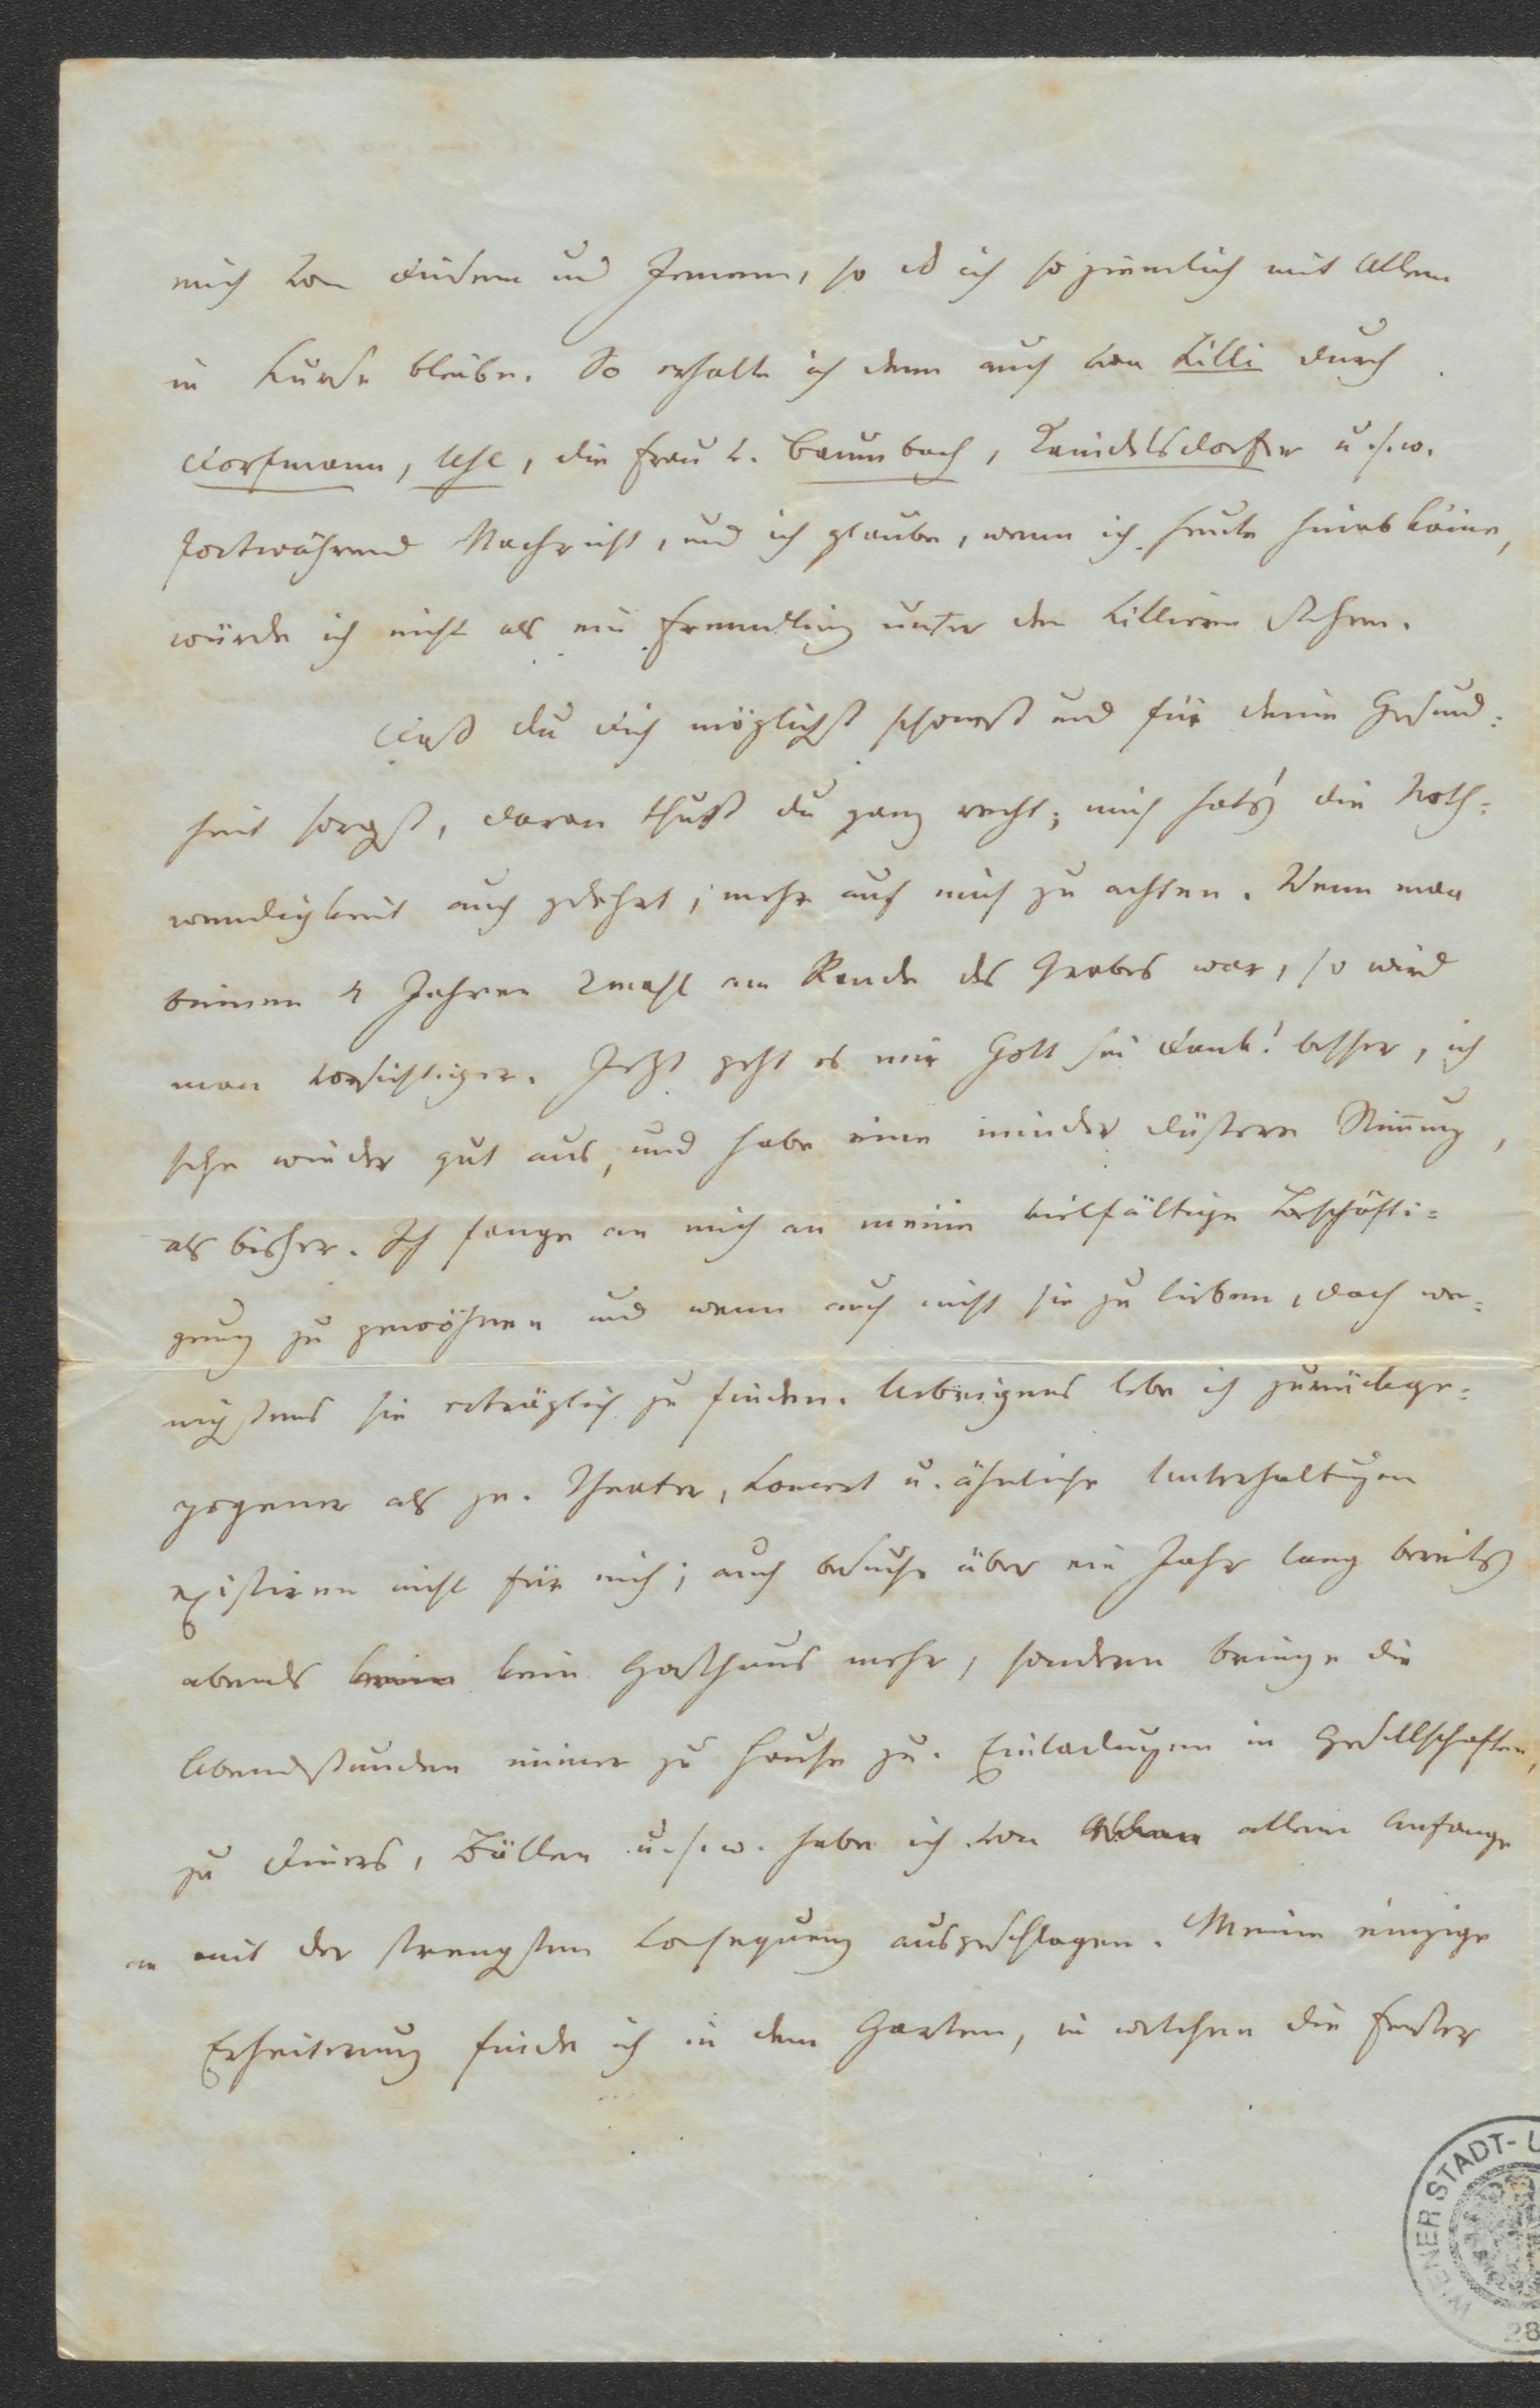 mich von Diesem und Jenem, so daß ich so ziemlich mit Allem
in Kurse bleibe. So erhalte ich denn auch von Cilli durch
Dorfmann, Uhl, die Frau v. Baumbach, u.s.w.
fortwährend Nachricht, und ich glaube, wenn ich heute hinabkäme,
würde ich nicht als ein Fremdling unter den Cilliern stehen.
Daß du dich möglichst schonest und für deine Gesund=
heit sorgst, daran thust du ganz recht; mich hat's die Noth=
wendigkeit auch gelehrt, mehr auf mich zu achten. Wenn man
binnen 4 Jahren 2mahl am Rande des Grabes war, so wird
man vorsichtiger. Jetzt geht es mir Gott sei Dank! besser, ich
sehe wieder gut aus, und habe eine minder düstere Stimung,
als bisher. Ich fange an mich an meine vielfältige Beschäfti=
gung zu gewöhnen und wenn auch nicht sie zu lieben, doch we=
nigstens sie erträglich zu finden. Uebrigens lebe ich zurückge=
zogener als je. Theater, Concert u. ähnliche Unterhaltungen
existiren nicht für mich; auch besuche über ein Jahr lang bereits
abends keine kein Gasthaus mehr, sondern bringe die
Abendstunden immer zu Hause zu. Einladungen in Gesellschaften,
zu Diners, Bällen u.s.w. habe ich von allem Anfange
an mit der strengsten Consequenz ausgeschlagen. Meine einzige
Erheiterung finde ich in dem Garten, in welchen die Fenster
WIENER STADT-
28